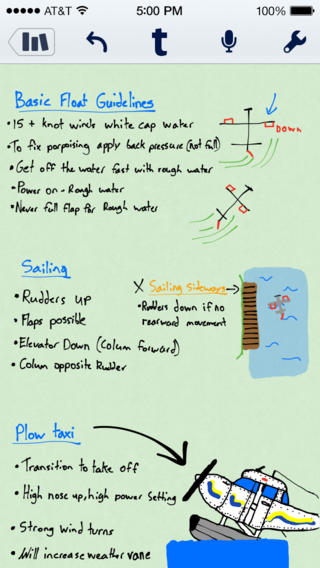 AT&T 5:00 PM 100%
t
Basic Float Guidelines
• 15 + knot winds white cap water
Down
• To fix porpoising apply back pressure (not full)
• Get off the water fast with rough water
• Power on - Rough water
• Never full flap for Rough water
Sailing
X Sailing sideways
• Rudders up
• Rudders down if no
rearward movement
• Flaps possible
• Elevator Down (Colum forward)
• Colum opposite Rudder
Plow taxi
• Transition to take off
• High nose up, high power setting
• Strong wind turns
• Will increase weather vane